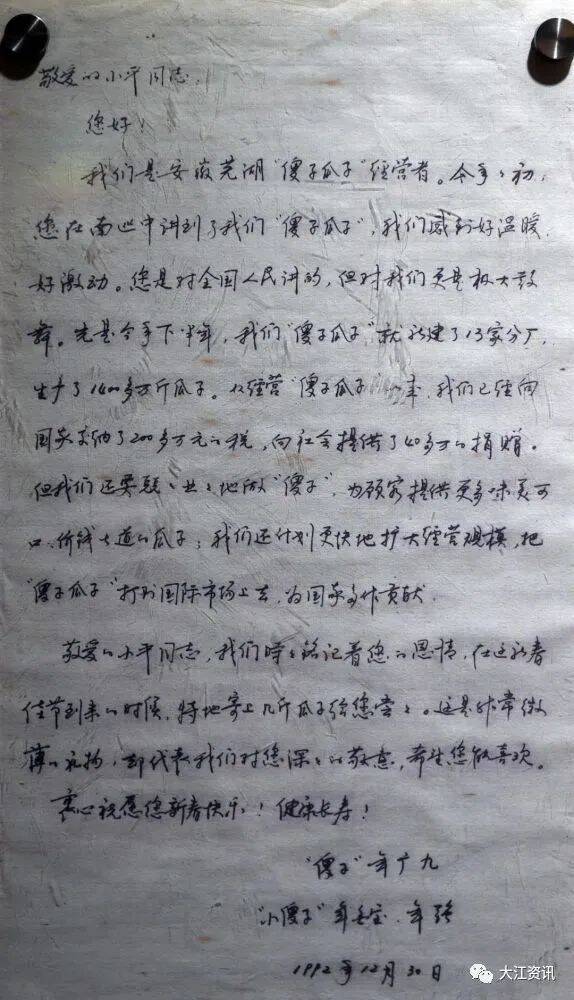 敬爱的小平同志：
您好！
我们是安徽芜湖“傻子瓜子”经营者。今年年初，
您在南巡中讲到了我们“傻子瓜子”，我们感到好温暖，
好激动。您是对全国人民讲的，但对我们更是极大鼓
舞。光是今年下半年，我们“傻子瓜子”就新建了13家分厂，
生产了1400多万斤瓜子。从经营“傻子瓜子”以来，我们已经向
国家交纳了200多万元的税，向社会提供了40多万的捐赠。
但我们还要兢兢业业地做“傻子”，为顾客提供更多味美可
口、价钱公道的瓜子；我们还计划更快地扩大经营规模，把
“傻子瓜子”打到国际市场上去，为国家多作贡献。
敬爱的小平同志，我们时时铭记着您的恩情，在这新春
佳节到来的时候，特地寄上几斤瓜子给您尝尝。这是非常微
薄的礼物，却代表我们对您深深的敬意，希望您能喜欢。
衷心祝愿您新春快乐！健康长寿！
“傻子”年广九
“小傻子”年金宝、年强
1992年12月30日
大江资讯